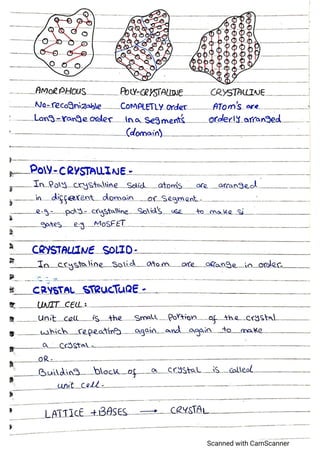 AMORPHOUS POLY-CRYSTALLINE CRYSTALLINE
No-recognizable COMPLETLY order ATom's are
Long-range order In a Segments orderly arranged
(domain)
POLY-CRYSTALLINE -
In Poly crystalline Solid atoms are arranged
in different domain or Segment.
e.g- poly- crystalline Solid's use to make Si
gates e.g MOSFET
CRYSTALLINE SOLID-
In crystaline Solid atom are arange in order.
CRYSTAL STRUCTURE -
UNIT CELL :
Unit cell is the small Portion of the crystal
which repeating again and again to make
a crystal.
OR-
Building block of a crystal is called
unit cell.
LATTICE + BASES → CRYSTAL
Scanned with CamScanner